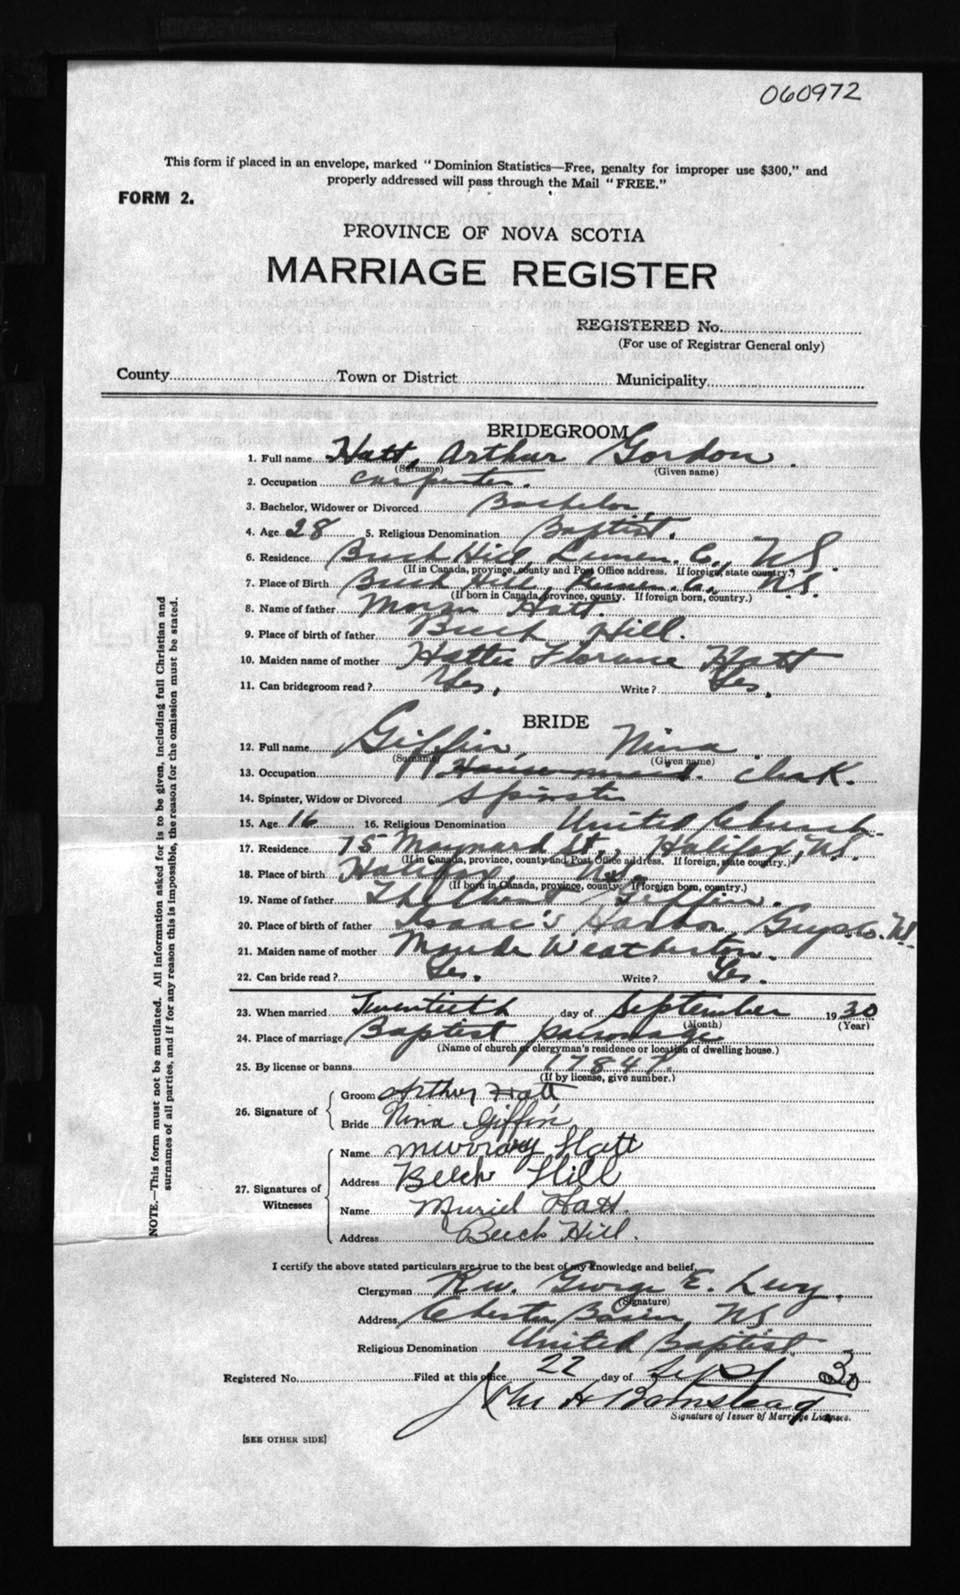 060972
This form if placed in an envelope, marked "Dominion Statistics—Free, penalty for improper use $300," and
properly addressed will pass through the Mail "FREE."
FORM 2.
PROVINCE OF NOVA SCOTIA
MARRIAGE REGISTER
REGISTERED No.
(For use of Registrar General only)
County Town or District Municipality
BRIDEGROOM
1. Full name Hatt, Arthur Gordon.
(Surname) (Given name)
2. Occupation carpenter.
3. Bachelor, Widower or Divorced Bachelor,
4. Age 28 5. Religious Denomination Baptist.
6. Residence Beech Hill, Lunen. Co., N.S.
(If in Canada, province, county and Post Office address. If foreign, state country.)
7. Place of Birth Beech Hill, Lunen. Co., N.S.
(If born in Canada, province, county. If foreign born, country.)
8. Name of father Hatt.
9. Place of birth of father Beech Hill.
10. Maiden name of mother Hattie Florence Hatt
11. Can bridegroom read? Yes, Write? Yes.
BRIDE
12. Full name Giffin, Nina
(Surname) (Given name)
13. Occupation clerk.
14. Spinster, Widow or Divorced Spinster
15. Age 16 16. Religious Denomination United Church.
17. Residence 75 Maynard St., Halifax, N.S.
(If in Canada, province, county and Post Office address. If foreign, state country.)
18. Place of birth Halifax, N.S.
(If born in Canada, province, county. If foreign born, country.)
19. Name of father Giffin.
20. Place of birth of father Isaac's Harbor, Guys. Co. N.S.
21. Maiden name of mother Maude Weatherton.
22. Can bride read? Yes. Write? Yes.
23. When married Twentieth day of September 1930
(Month) (Year)
24. Place of marriage Baptist parsonage
(Name of church or clergyman's residence or location of dwelling house.)
25. By license or banns 17847.
(If by license, give number.)
26. Signature of
Groom Arthur Hatt
Bride Nina Giffin
27. Signatures of Witnesses
Name Murray Hatt
Address Beech Hill
Name Muriel Hatt.
Address Beech Hill.
I certify the above stated particulars are true to the best of my knowledge and belief,
Clergyman Rev. George E. Levy.
(Signature)
Address Chester Basin, NS
Religious Denomination United Baptist.
Registered No. Filed at this office 22 day of Sept 30
Signature of Issuer of Marriage Licenses.
[SEE OTHER SIDE]
NOTE.—This form must not be mutilated. All information asked for is to be given, including full Christian and
surnames of all parties, and if for any reason this is impossible, the reason for the omission must be stated.